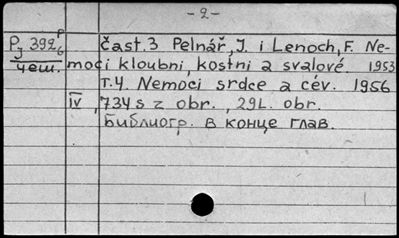 - 2 -
Pj 392 P/6 част.3 Pelnář, J. i Lenoch, F. Ne-
чеш. moci kloubni, kostni a svalové. 1953
т.4. Nemoci srdce a cév. 1956
IV, 734 s z obr., 29L. obr.
Библиогр. в конце глав.